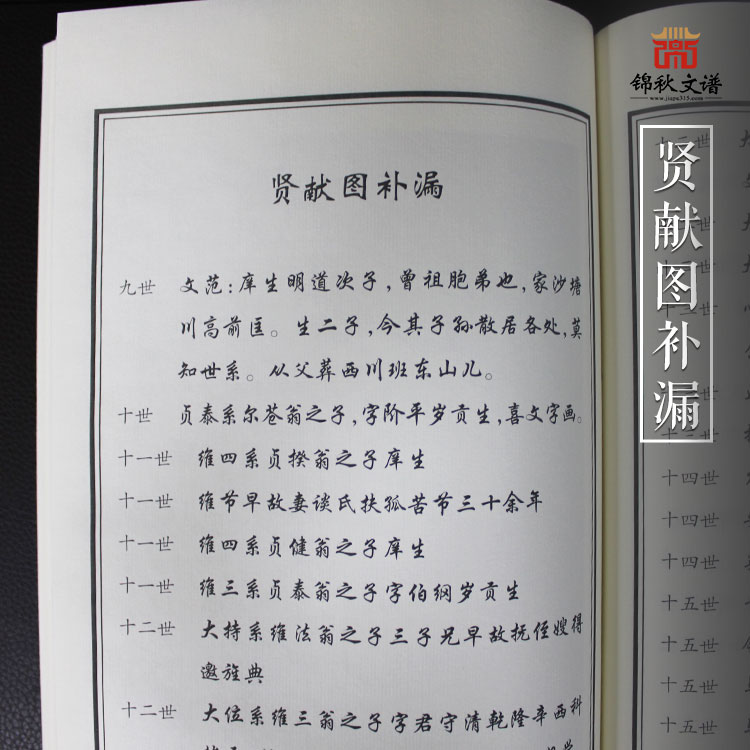 锦秋文谱
www.jiapu315.com
贤献图补漏
贤献图补漏
九世 文范：庠生明道次子，曾祖胞弟也，家沙塘
川高前匡。生二子，今其子孙散居各处，莫
知世系。从父葬西川班东山儿。
十世 贞泰系尔苍翁之子，字阶平岁贡生，喜文字画。
十一世 维四系贞揆翁之子庠生
十一世 维节早故妻谈氏扶孤苦节三十余年
十一世 维四系贞健翁之子庠生
十一世 维三系贞泰翁之子字伯纲岁贡生
十二世 大持系维法翁之子三子兄早故抚侄嫂得
邀旌典
十二世 大位系维三翁之子字君守清乾隆辛酉科
十三世
十四世
十四世
十四世
十五世
十五世
十五世
十五世